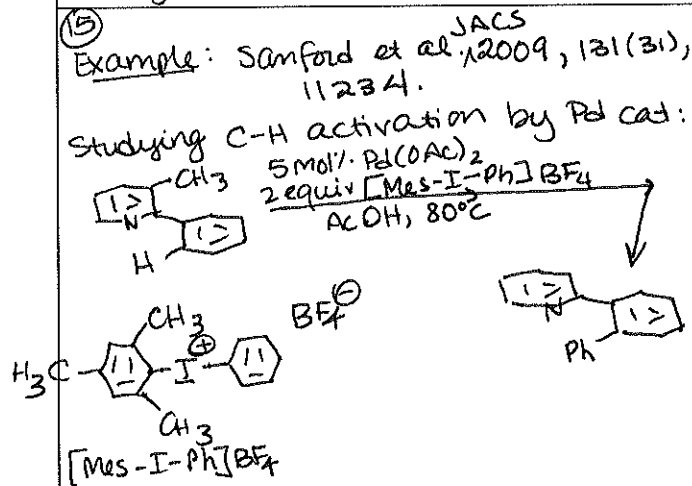 15
JACS
Example: Sanford et al. 2009, 131(31),
11234.
Studying C-H activation by Pd cat:
5 mol% Pd(OAc)2
2 equiv [Mes-I-Ph]BF4
AcOH, 80°C
CH3
N
H
CH3
BF4⊖
H3C
I⊕
CH3
N
Ph
[Mes-I-Ph]BF4